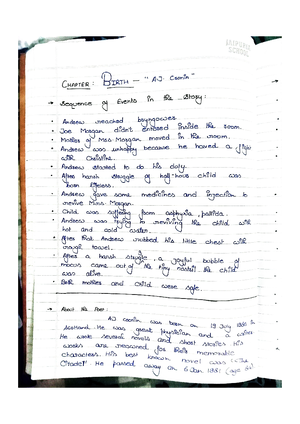 CHAPTER: BIRTH - "A.J. Cronin"
→ Sequence of Events in the Story:
• Andrew reached bryngower.
• Joe Morgan didn't entered inside the room.
• Mother of Mrs. Morgan moved in the room.
• Andrew was unhappy because he haved a fight
with Christine.
• Andrew started to do his duty.
• After harsh struggle of half-hour child was
born lifeless.
• Andrew gave some medicines and injection to
revive Mrs. Morgan.
• Child was suffering from asphyxia, pallida.
• Andrew was trying in reviving the child with
hot and cold water.
• After that Andrew rubbed his little chest with
rough towel.
• After a harsh struggle, a joyful bubble of
mocus came out of the tiny nostril the child
was alive.
• Both mother and child were safe.
→ About the Poet:
AJ cronin was born on 19 July in
Scotland. He was great physician and a writer
He wrote several novels and short stories His
works are renowned for their memorable
characters. His best known novel was
Citadel" He passed away on 6 Jan 1981